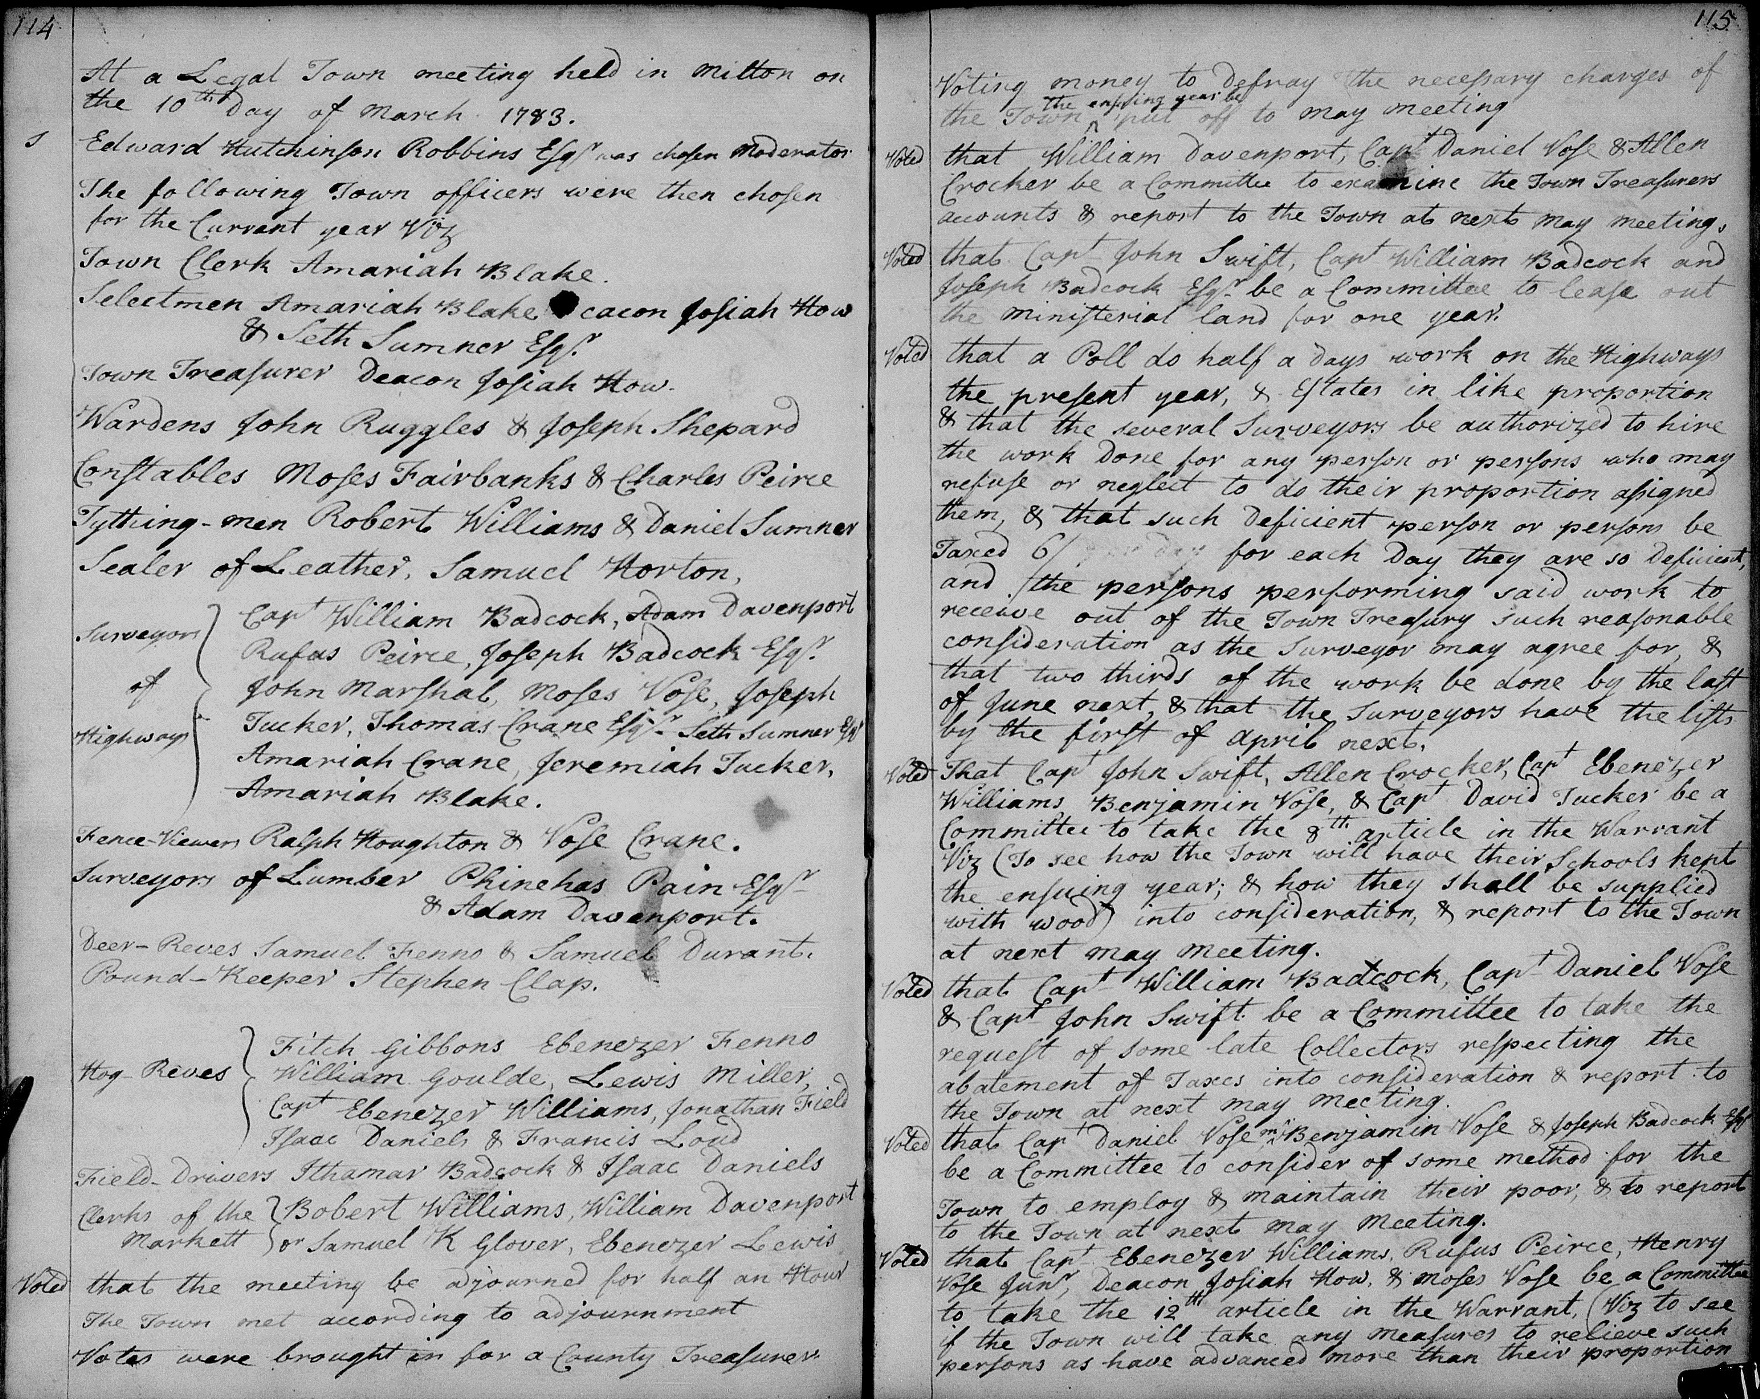 114
At a Legal Town meeting held in Milton on
the 10th Day of March 1783.
Edward Hutchinson Robbins Esqr was chosen Moderator
The following Town officers were then chosen
for the Currant year Viz
Town Clerk Amariah Blake.
Selectmen Amariah Blake Deacon Josiah How
& Seth Sumner Esqr
Town Treasurer Deacon Josiah How.
Wardens John Ruggles & Joseph Shepard
Constables Moses Fairbanks & Charles Peirce
Tything-men Robert Williams & Daniel Sumner
Sealer of Leather, Samuel Horton,
Surveyors of Highways
Capt William Badcock, Adam Davenport
Rufus Peirce, Joseph Badcock Esqr.
John Marshal, Moses Vose, Joseph
Tucker, Thomas Crane Esqr Seth Sumner Esqr
Amariah Crane, Jeremiah Tucker,
Amariah Blake.
Fence-Viewers Ralph Houghton & Vose Crane.
Surveyors of Lumber Phinehas Pain Esqr
& Adam Davenport.
Deer-Reves Samuel Fenno & Samuel Durant.
Pound-Keeper Stephen Clap.
Hog Reves
Fitch Gibbons Ebenezer Fenno
William Goulde, Lewis Miller,
Capt Ebenezer Williams, Jonathan Field
Isaac Daniels & Francis Loud
Field-Drivers Ithamar Badcock & Isaac Daniels
Clerks of the Markett
Bobert Williams, William Davenport
or Samuel K Glover, Ebenezer Lewis
Voted that the meeting be adjourned for half an Hour
The Town met according to adjournment
Votes were brought in for a County Treasurer
115
Voting money to defray the necessary charges of
the Town the ensuing year be put off to may meeting
Voted that William Davenport, Capt Daniel Vose & Allen
Crocker be a Committee to examine the Town Treasurers
acounts & report to the Town at next may meeting,
Voted that Capt John Swift, Capt William Badcock and
Joseph Badcock Esqr be a Committee to lease out
the ministerial land for one year.
Voted that a Poll do half a days work on the Highways
the present year, & Estates in like proportion
& that the several Surveyors be authorized to hire
the work Done for any person or persons who may
refuse or neglect to do their proportion assigned
them, & that such Deficient person or persons be
Taxed 6/ for each Day they are so Deficient,
and the persons performing said work to
receive out of the Town Treasury such reasonable
consideration as the Surveyor may agree for, &
that two thirds of the work be done by the last
of June next, & that the Surveyors have the lists
by the first of April next.
Voted That Capt John Swift, Allen Crocker, Capt Ebenezer
Williams, Benjamin Vose, & Capt David Tucker be a
Committee to take the 8th article in the Warrant
Viz (To see how the Town will have their Schools kept
the ensuing year; & how they shall be supplied
with wood) into consideration, & report to the Town
at next may meeting.
Voted that Capt William Badcock, Capt Daniel Vose
& Capt John Swift be a Committee to take the
request of some late Collectors respecting the
abatement of Taxes into consideration & report to
the Town at next may meeting.
Voted that Capt Daniel Vose mr Benjamin Vose & Joseph Badcock Esqr
be a Committee to consider of some method for the
Town to employ & maintain their poor, & to report
to the Town at next may Meeting.
Voted that Capt Ebenezer Williams, Rufus Peirce, Henry
Vose Junr, Deacon Josiah How, & Moses Vose be a Committee
to take the 12th article in the Warrant, (Viz to see
if the Town will take any measures to relieve such
persons as have advanced more than their proportion